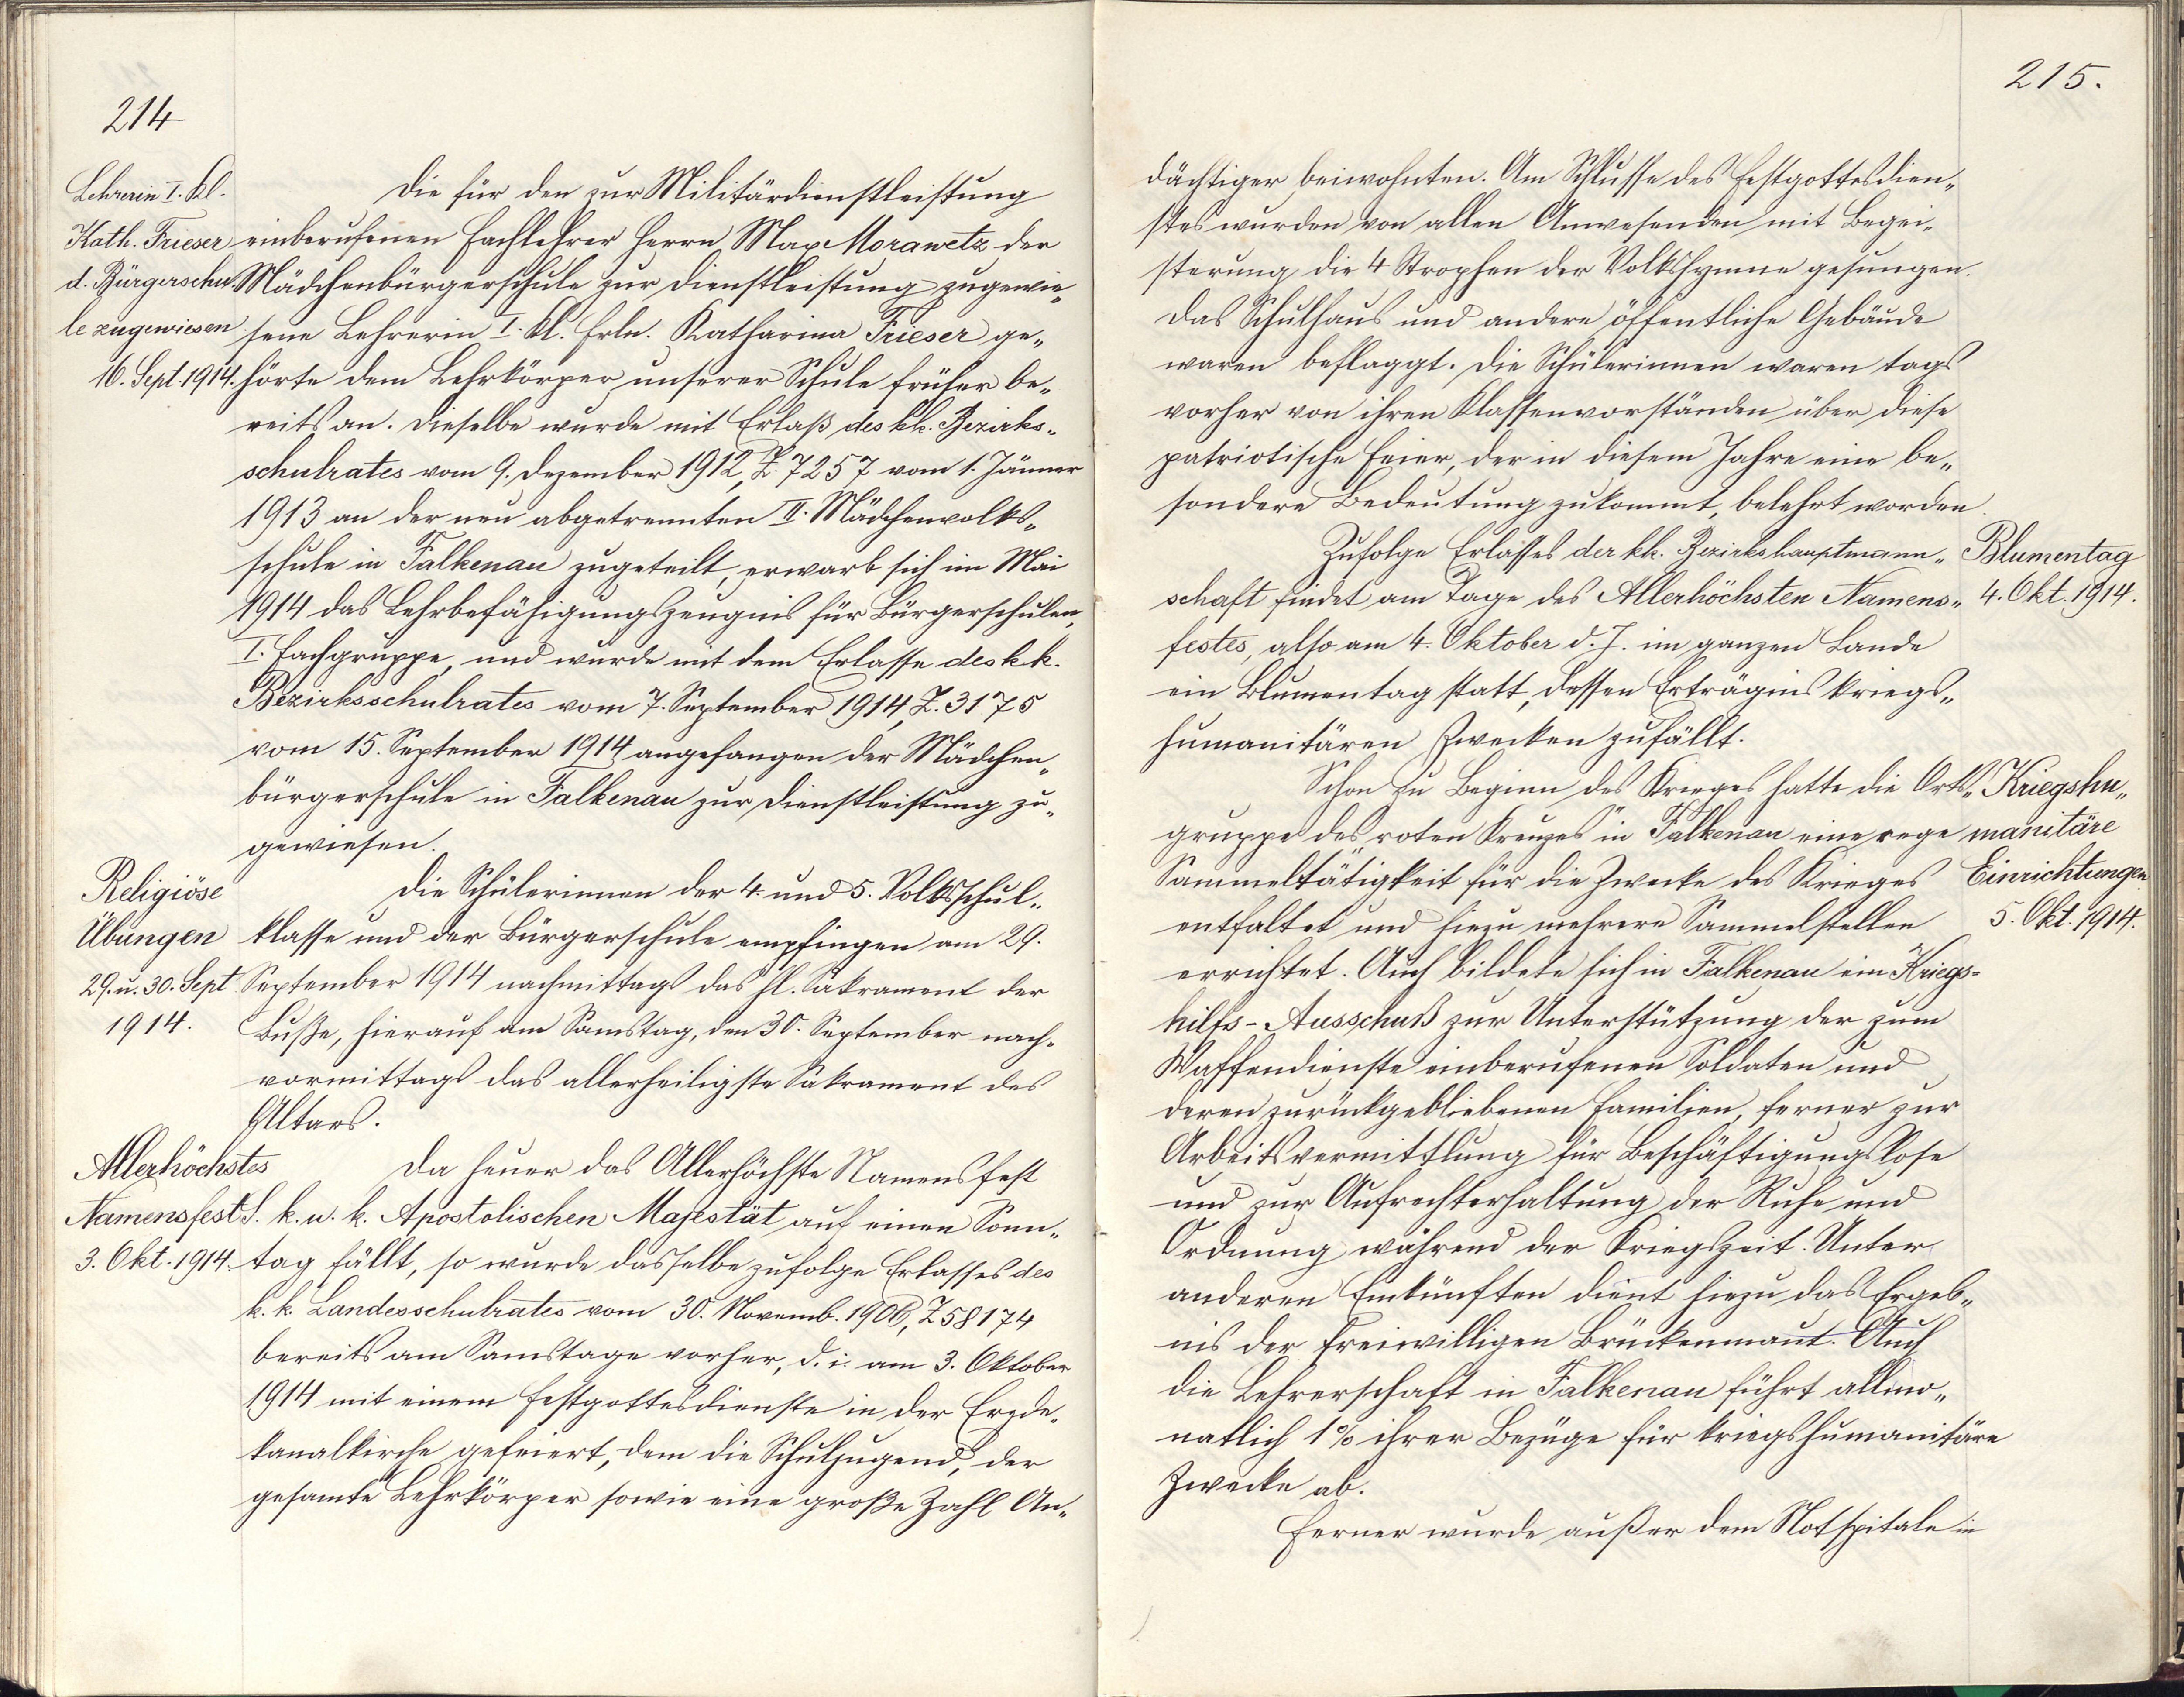 214
Lehrerin I. Kl.
Kath. Frieser
d. Bürgerschu-
le zugewiesen
16. Sept. 1914.
Die für den zur Militärdienstleistung
einberufenen Fachlehrer Herrn Max Morawetz der
Mädchenbürgerschule zur Dienstleistung zugewie„
sene Lehrerin I. Kl. Frln. Katharina Frieser ge„
hörte dem Lehrkörper unserer Schule früher be„
reits an. Dieselbe wurde mit Erlaß des k.k. Bezirks„
schulrates vom 9. Dezember 1912, Z. 7257 vom 1. Jänner
1913 an der neu abgetrennten II. Mädchenvolks„
schule in Falkenau zugeteilt, erwarb sich im Mai
1914 das Lehrbefähigungszeugnis für Bürgerschulen,
I. Fachgruppe, und wurde mit dem Erlasse des k.k.
Bezirksschulrates vom 7. September 1914, Z. 3175
vom 15. September 1914 angefangen der Mädchen„
bürgerschule in Falkenau zur Dienstleistung zu„
gewiesen.
Religiöse
Übungen
29. u. 30. Sept.
1914.
Die Schülerinnen der 4. und 5. Volksschul„
klasse und der Bürgerschule empfingen am 29.
September 1914 nachmittags das hl. Sakrament der
Buße, hierauf am Samstag, den 30. September nach„
vormittags das allerheiligste Sakrament des
Altars.
Allerhöchstes
Namensfest
3. Okt. 1914.
Da heuer das Allerhöchste Namensfest
S. k. u. k. Apostolischen Majestät auf einen Sonn„
tag fällt, so wurde dasselbe zufolge Erlasses des
k. k. Landesschulrates vom 30. Novemb. 1906, Z 58174
bereits am Samstage vorher, d. i. am 3. Oktober
1914 mit einem Festgottesdienste in der Erzde„
kanalkirche gefeiert, dem die Schuljugend, der
gesamte Lehrkörper sowie eine große Zahl An„
215.
dächtiger beiwohnten. Am Schlusse des Festgottesdien„
stes wurden von allen Anwesenden mit Begei„
sterung die 4 Strophen der Volkshymne gesungen.
Das Schulhaus und andere öffentliche Gebäude
waren beflaggt. Die Schülerinnen waren tags
vorher von ihren Klassenvorständen über diese
patriotische Feier, der in diesem Jahre eine be„
sondere Bedeutung zukommt, belehrt worden.
Blumentag
4. Okt. 1914.
Zufolge Erlasses der k.k. Bezirkshauptmann„
schaft findet am Tage des Allerhöchsten Namens„
festes, also am 4. Oktober d. J. im ganzen Lande
ein Blumentag statt, dessen Erträgnis kriegs„
humanitären Zwecken zufällt.
Kriegshu„
manitäre
Einrichtungen.
5. Okt. 1914.
Schon zu Beginn des Krieges hatte die Orts„
gruppe des „roten Kreuzes" in Falkenau eine rege
Sammeltätigkeit für die Zwecke des Krieges
entfaltet und hiezu mehrere Sammelstellen
errichtet. Auch bildete sich in Falkenau ein Kriegs-
hilfs-Ausschuß zur Unterstützung der zum
Waffendienste einberufenen Soldaten und
deren zurückgebliebenen Familien, ferner zur
Arbeitsvermittlung für Beschäftigungslose
und zur Aufrechterhaltung der Ruhe und
Ordnung während der Kriegszeit. Unter
anderen Einkünften dient hiezu das Ergeb„
nis der freiwilligen Brückenmaut. Auch
die Lehrerschaft in Falkenau führt allmo„
natlich 1% ihrer Bezüge für kriegshumanitäre
Zwecke ab.
Ferner wurde außer dem Notspitale in